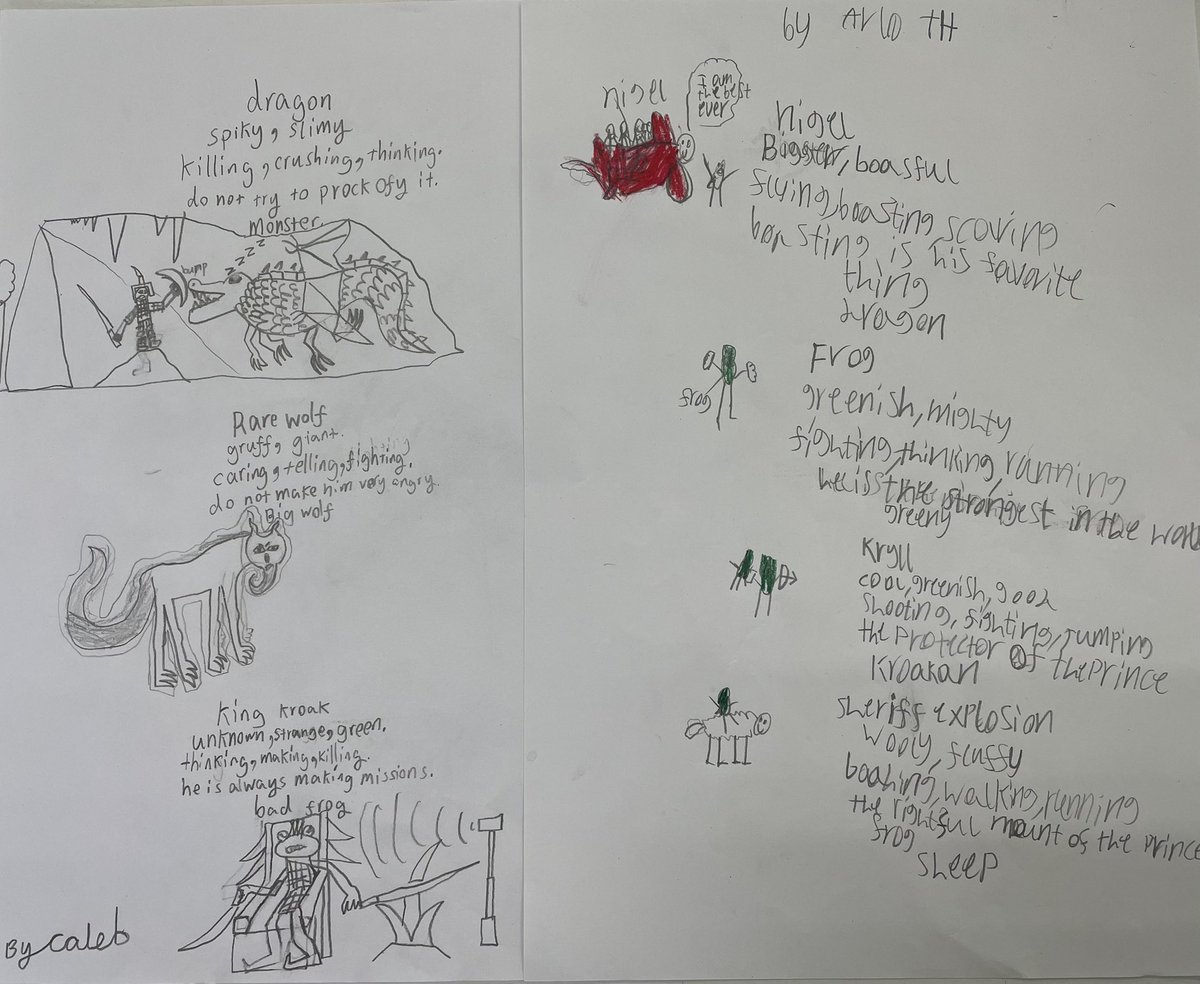 dragon
spiky, slimy
killing, crushing, thinking.
do not try to prockofy it.
monster.
zzzzz
bump
Rare wolf
gruff, giant.
caring, telling, fighting.
do not make him very angry.
Big wolf
King Kroak
unknown, strange, green.
thinking, making, killing.
he is always making missions.
bad frog
By Caleb
by Arlo TH
nigel
I am
the best
ever
nigel
boasful
flying, boasting, scaring
boasting is his favorite
thing
dragon
frog
Frog
greenish, mighty
fighting, thinking, running
he is the strongest in the world
greeny
Kryll
cool, greenish, good
shooting, fighting, jumping
the protector of the prince
Kroakan
sheriff explosion
wooly, fluffy
baahing, walking, running
the rightful mount of the prince
frog
sheep